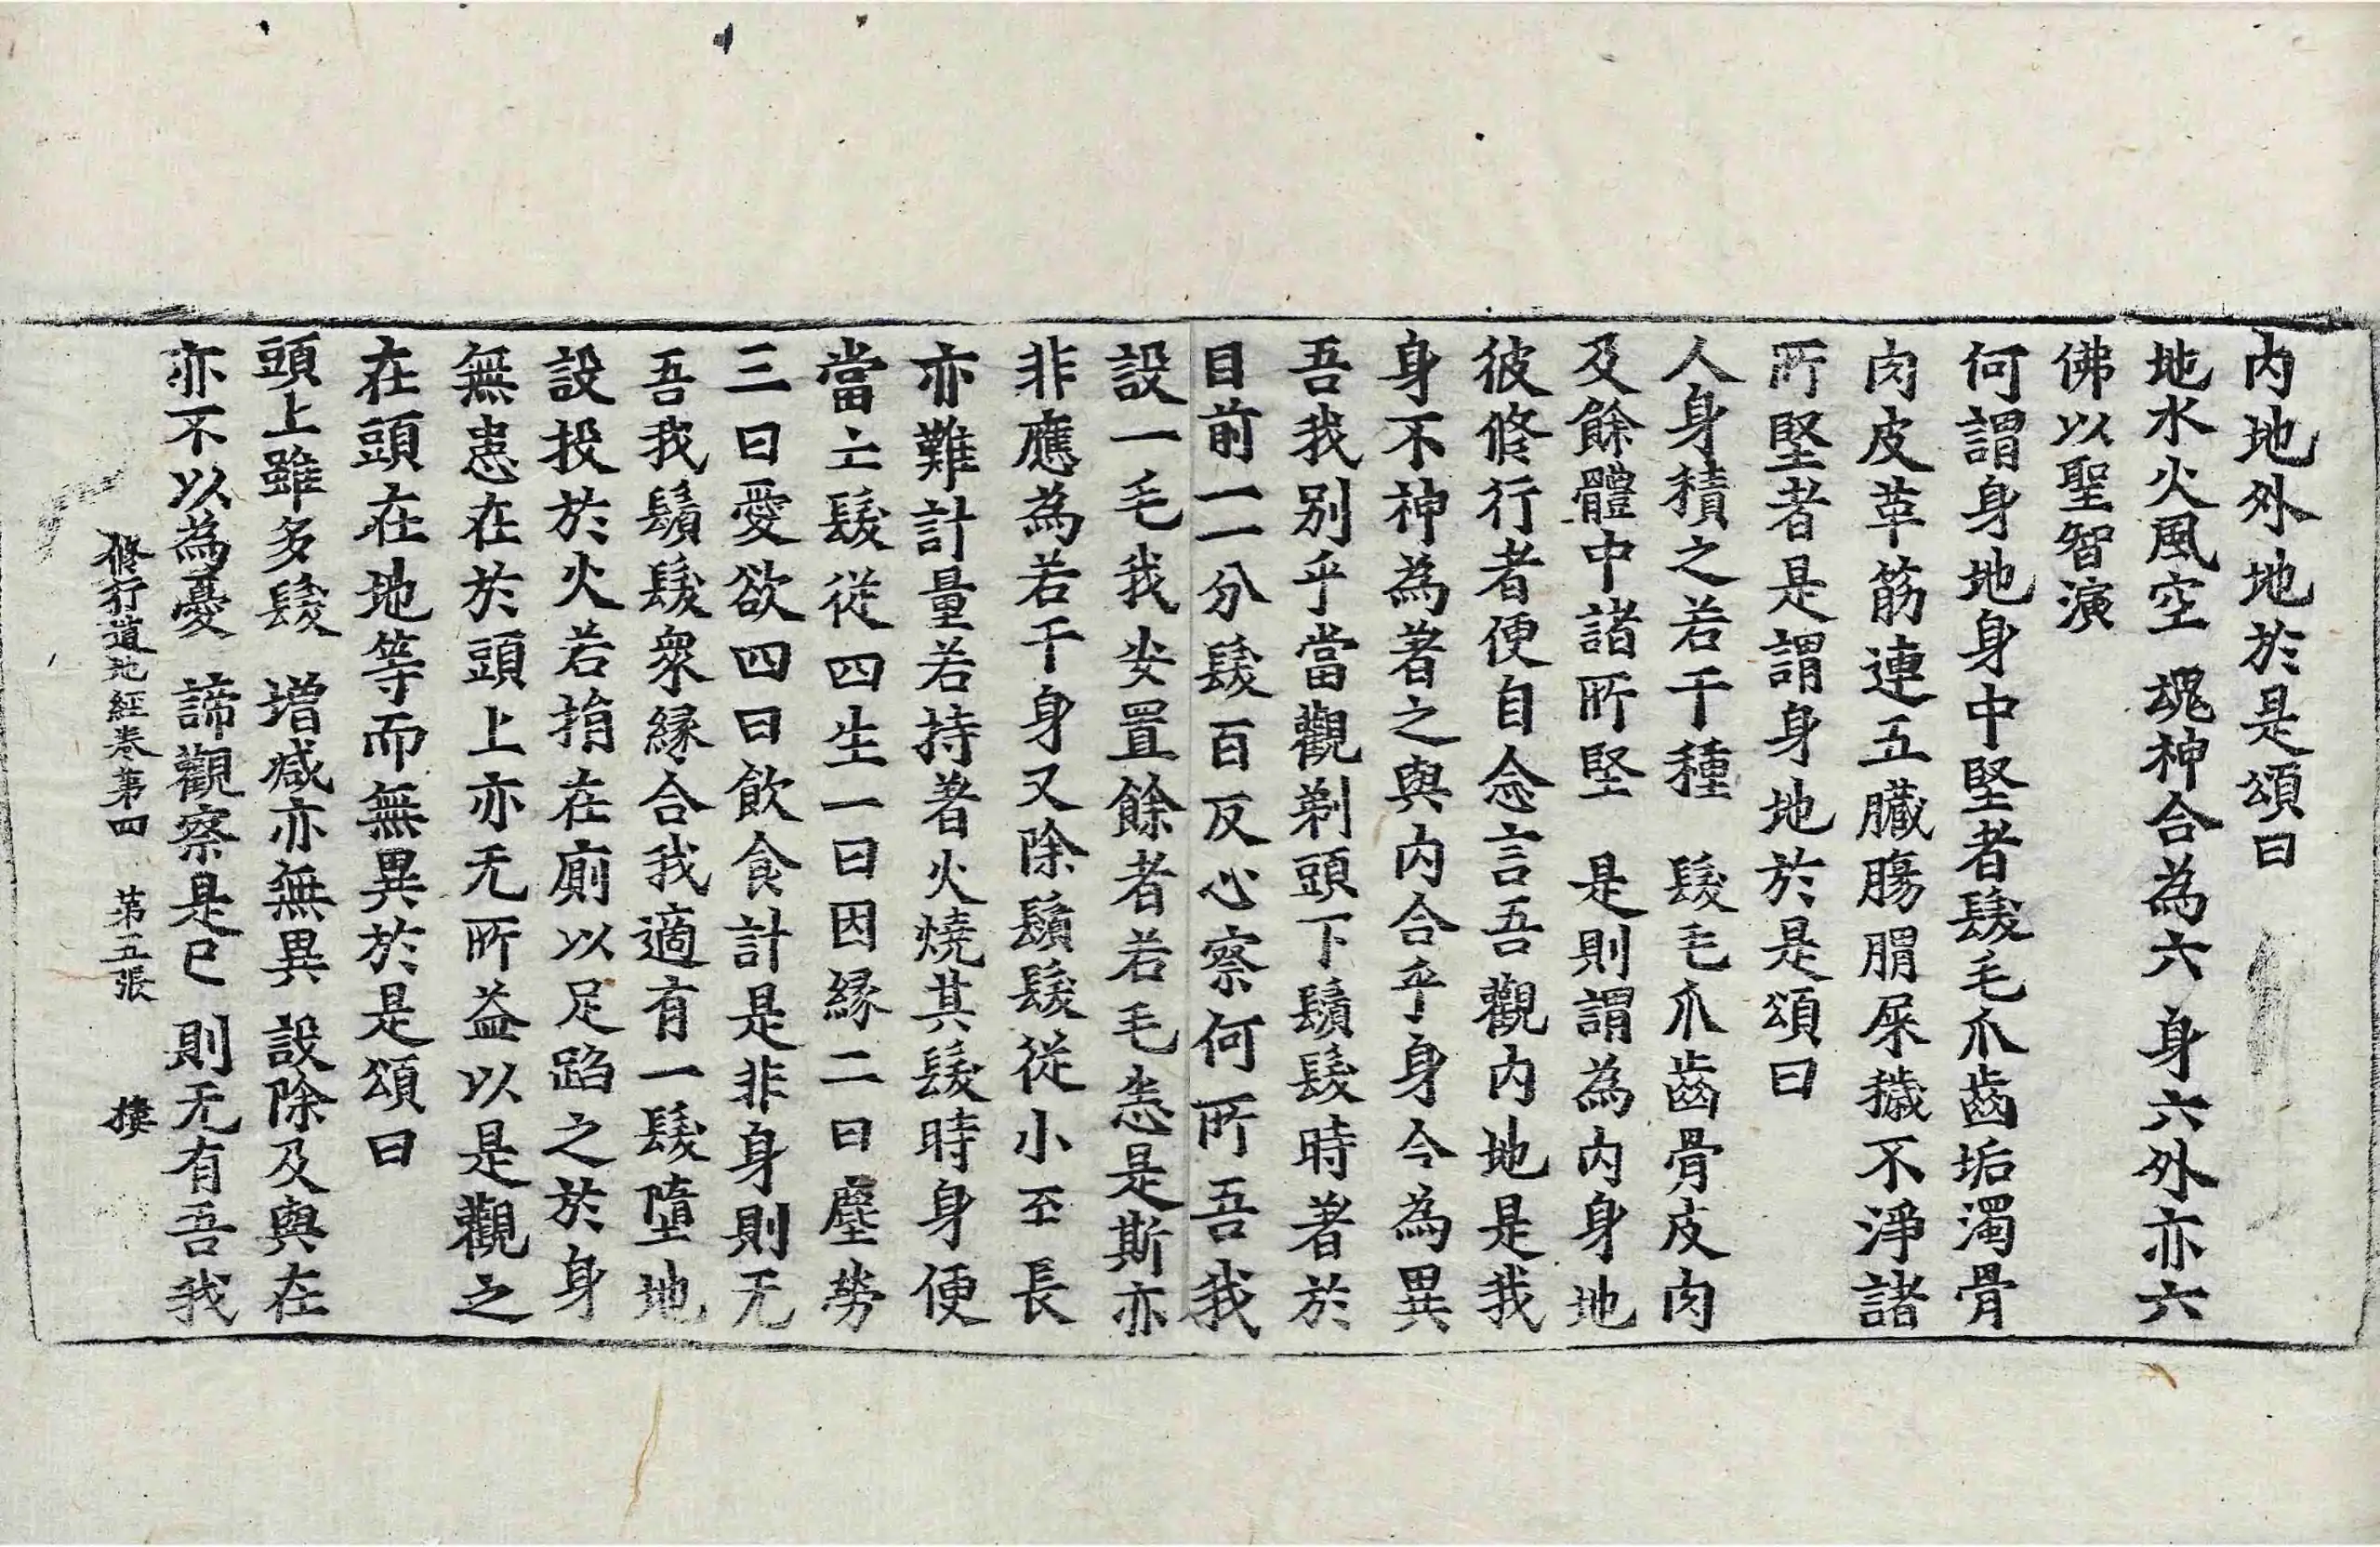 内地外地於是頌曰
地水火風空 魂神合為六 身六外亦六
佛以聖智演
何謂身地身中堅者髮毛爪齒垢濁骨
肉皮革筋連五臟腸胃屎穢不淨諸
所堅者是謂身地於是頌曰
人身積之若干種 髮毛爪齒骨皮肉
及餘體中諸所堅 是則謂為内身地
彼修行者便自念言吾觀内地是我
身不神為著之與内合乎身今為異
吾我別乎當觀剃頭下鬚髮時著於
目前一一分髮百反心察何所吾我
設一毛我安置餘者若毛悉是斯亦
非應為若干身又除鬚髮從小至長
亦難計量若持著火燒其髮時身便
當亡髮從四生一曰因縁二曰塵勞
三曰愛欲四曰飲食計是非身則无
吾我鬚髮衆縁合我適有一髮墮地
設投於火若捐在廁以足蹈之於身
無患在於頭上亦无所益以是觀之
在頭在地等而無異於是頌曰
頭上雖多髮 增減亦無異 設除及與在
亦不以為憂 諦觀察是已 則无有吾我
修行道地經卷第四 第五張 樓